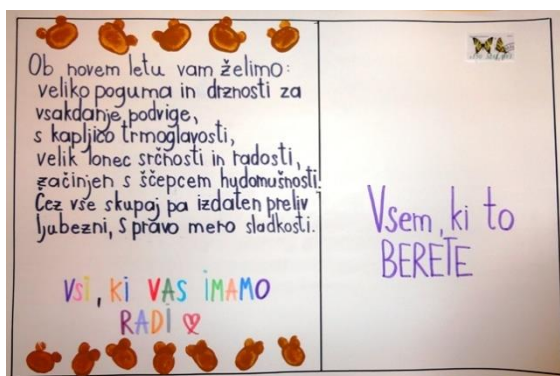 Ob novem letu vam želimo:
veliko poguma in drznosti za
vsakdanje podvige,
s kapljico trmoglavosti,
velik lonec srčnosti in radosti,
začinjen s ščepcem hudomušnosti.
Čez vse skupaj pa izdaten preliv
ljubezni, s pravo mero sladkosti.
VSI, KI VAS IMAMO
RADI
Vsem, ki to
BERETE